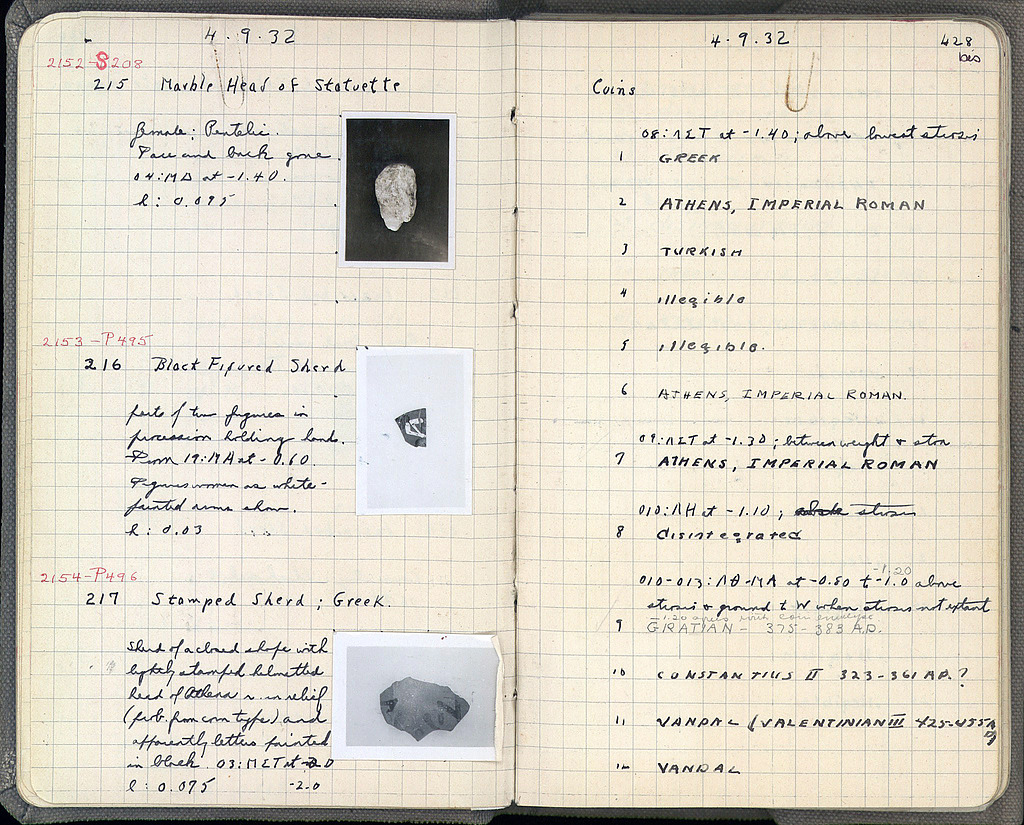 4.9.32
2152-S208
215 Marble Head of Statuette
female; Pentelic.
Face and back gone.
04:ΜΔ at -1.40.
h: 0.095
2153-P495
216 Black Figured Sherd
parts of two figures in
procession holding hands.
From 19:ΜΑ at -0.60.
Figures women as white-
painted arms show.
h: 0.03
2154-P496
217 Stamped Sherd; Greek.
Sherd of a closed shape with
lightly stamped helmetted
head of Athena r. in relief
(prob. from coin type) and
apparently letters painted
in black. 03:ΜΣΤ at
l: 0.075 -2.0
4.9.32
428
bis
Coins
08:ΛΣΤ at -1.40; above lowest strosis
1 GREEK
2 ATHENS, IMPERIAL ROMAN
3 TURKISH
4 illegible
5 illegible.
6 ATHENS, IMPERIAL ROMAN.
09:ΛΣΤ at -1.30; between weight &
7 ATHENS, IMPERIAL ROMAN
010:ΛΗ at -1.10; strosis
8 disintegrated
-1.20
010-013:ΛΘ-ΜΑ at -0.80 t -1.0 above
strosis & ground t W when strosis not extant
-1.20 with coin
9 GRATIAN - 375-383 A.D.
10 CONSTANTIUS II 323-361 A.D.?
11 VANDAL (VALENTINIAN III 425-455 A
D)
12 VANDAL